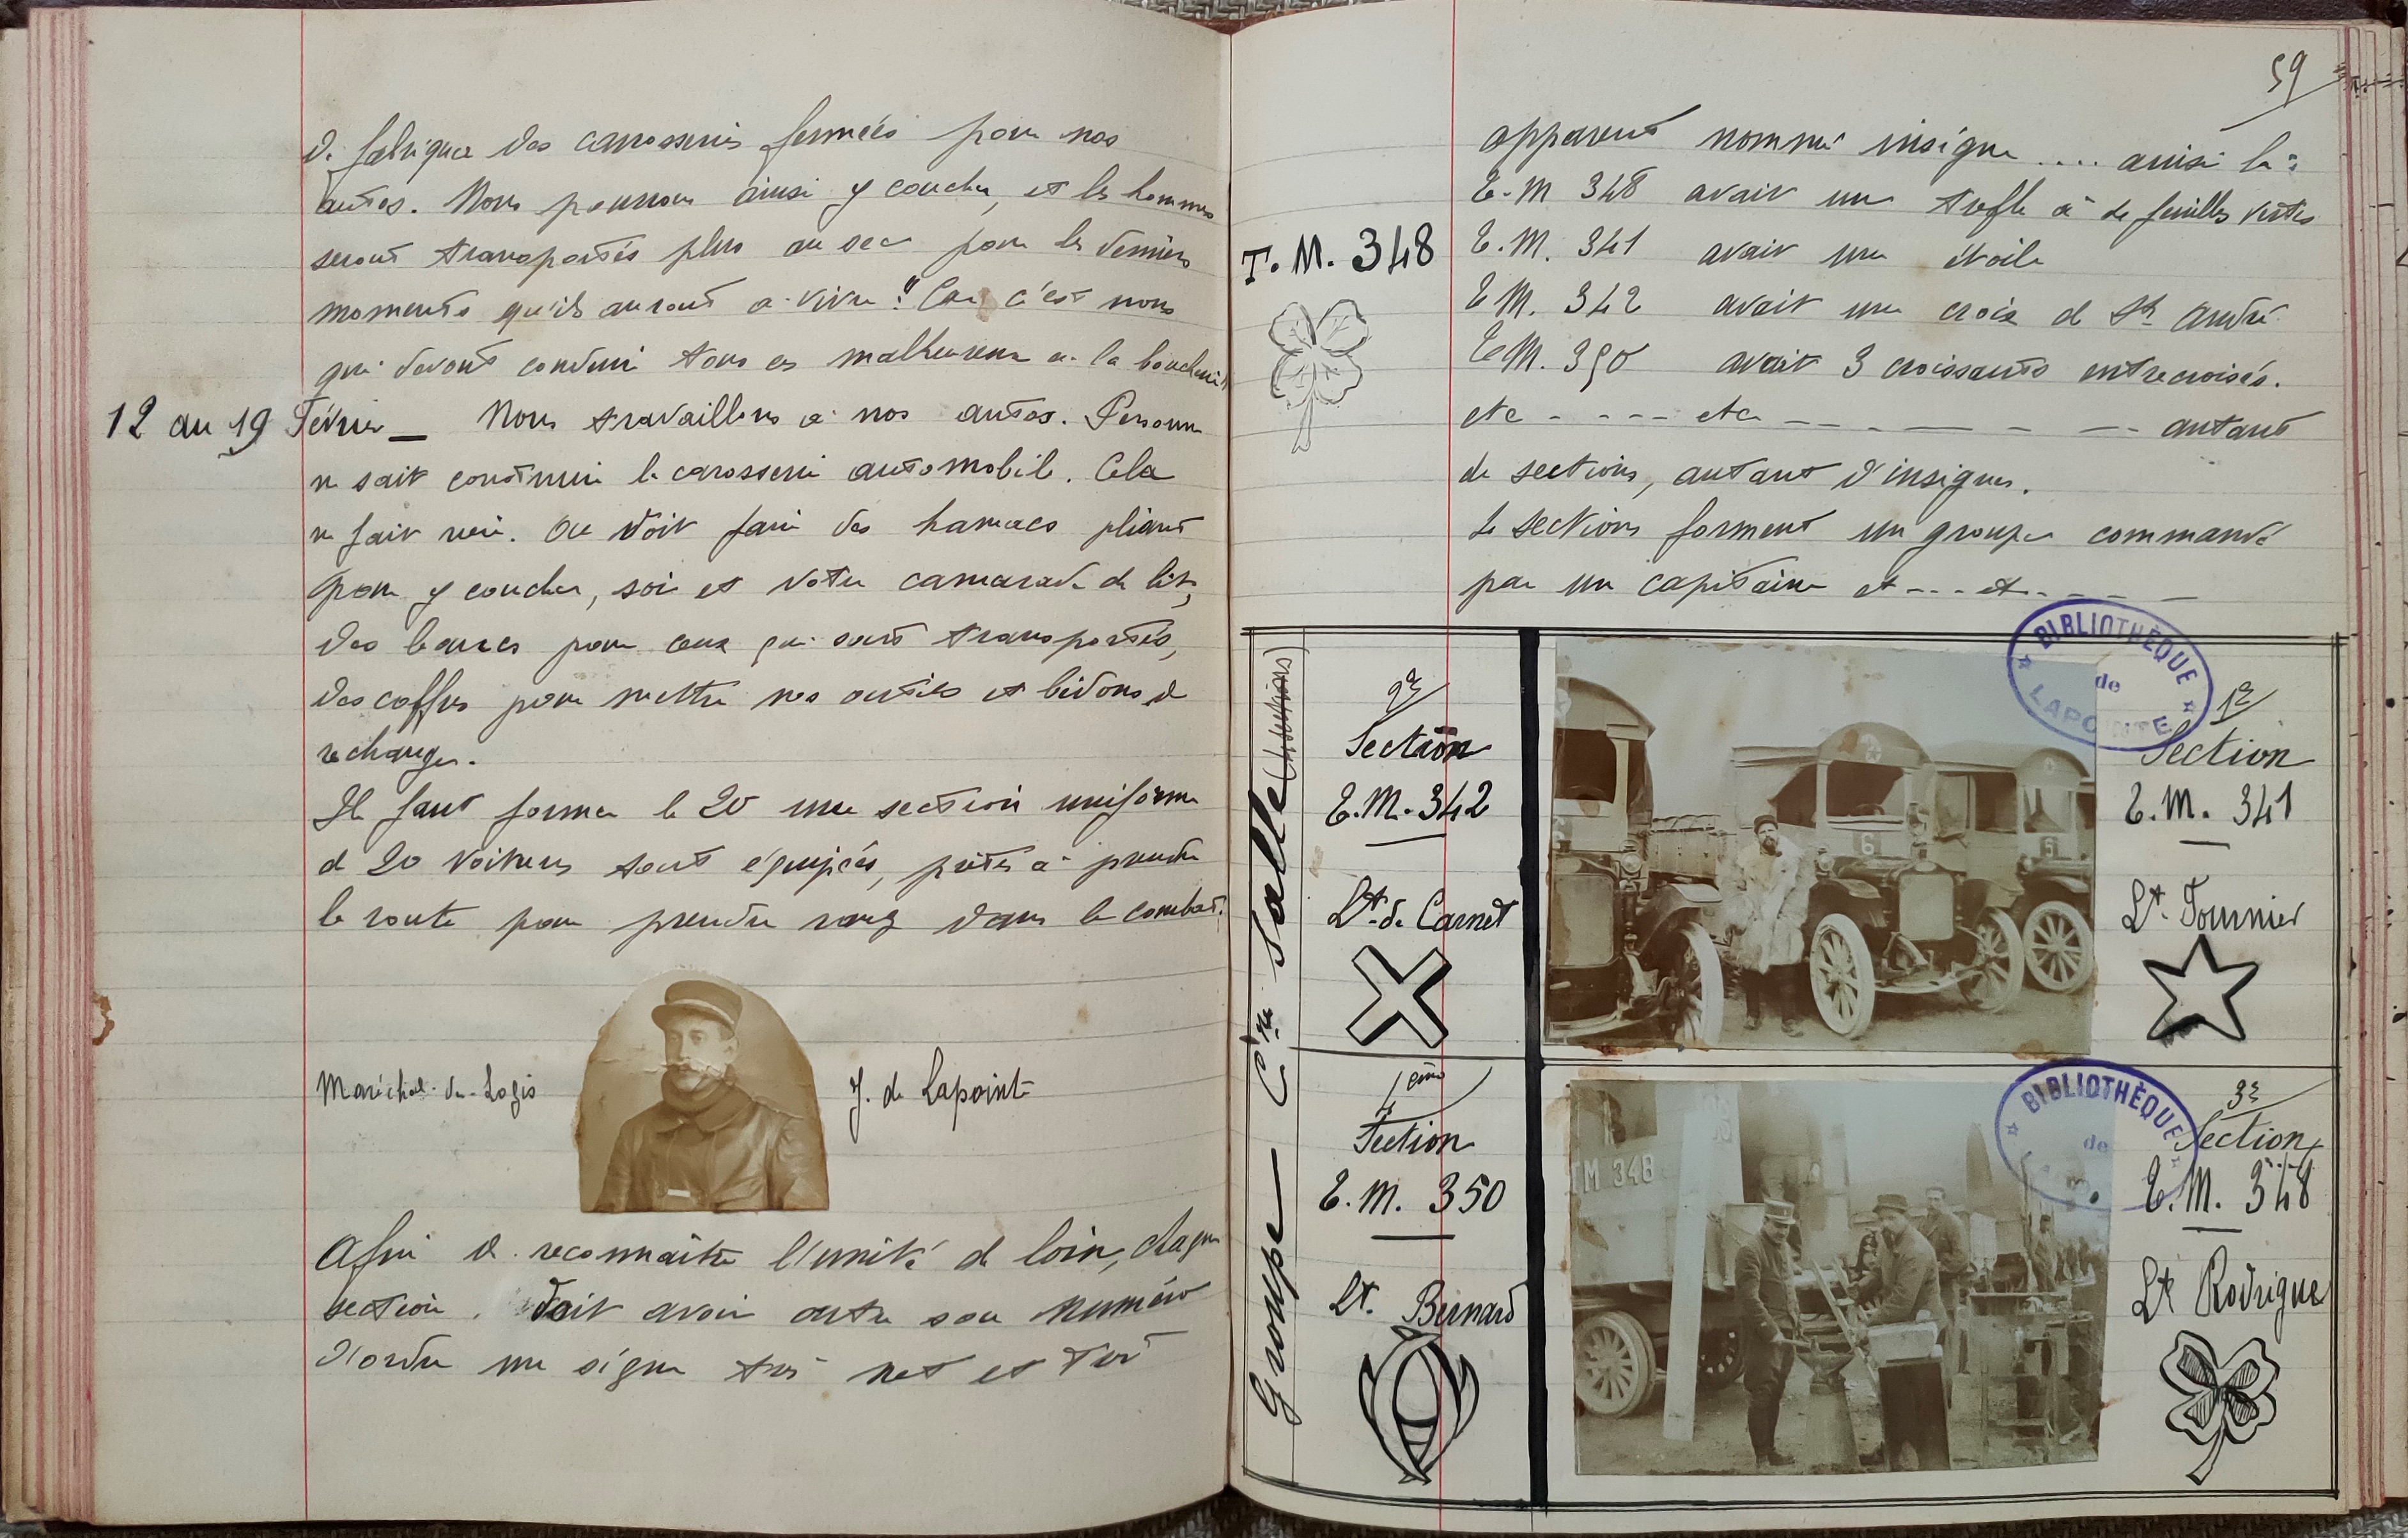 de fabriquer des carosseries fermées pour nos
autos. Nous pourrons ainsi y coucher, et les hommes
seront transportés plus au sec pour les derniers
moments qu'ils auront à vivre !! Car c'est nous
qui devons conduire tous ces malheureux à la boucherie !
12 au 19 Février — Nous travaillons à nos autos. Personne
ne sait construire la carosserie automobile. Cela
ne fait rien. On doit faire des hamacs pliants
pour y coucher, soi et votre camarade de lit,
des bancs pour ceux qui sont transportés,
des coffres pour mettre nos outils et bidons de
rechanges.
Il faut former le 20 une section uniforme
de 20 voitures tout équipées, prêtes à prendre
la route pour prendre rang dans le combat.
Maréchal-des-Logis
J. de Lapointe
Afin de reconnaître l'unité de loin, chaque
section doit avoir outre son numéro
d'ordre un signe très net et très
59
apparent nommé insigne .... ainsi la :
T.M 348 avait un trefle à de feuilles vertes
T.M. 341 avait une étoile
T M. 342 avait une croix de St André
T M. 350 avait 3 croissants entrecroisés.
etc - - - - etc - - - - - - - autant
de sections, autant d'insignes.
4 sections forment un groupe commandé
par un capitaine et --- et - - - -
T. M. 348
Groupe — Cne Salle
2e
Section
T.M. 342
Lt de Carnet
1e
Section
T.M. 341
Lt. Tournier
6
5
4ème
Section
T.M. 350
Lt. Bernard
3e
Section
T.M. 348
Lt Rodrigue
TM 348
BIBLIOTHÈQUE
de
LAPOINTE
BIBLIOTHÈQUE
de